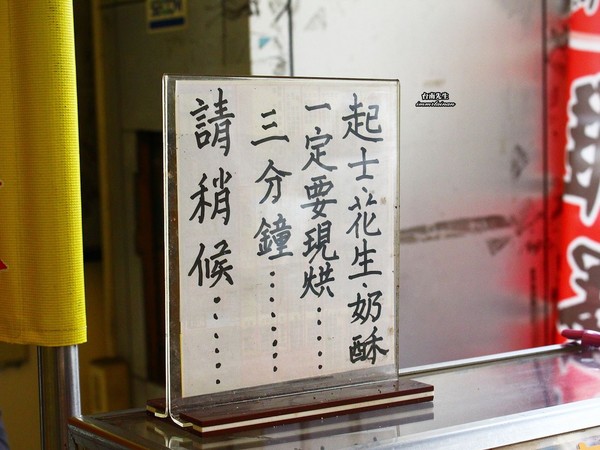 起士、花生、奶酥
一定要現烘......
三分鐘......
請稍候......
台南先生
immrtainan